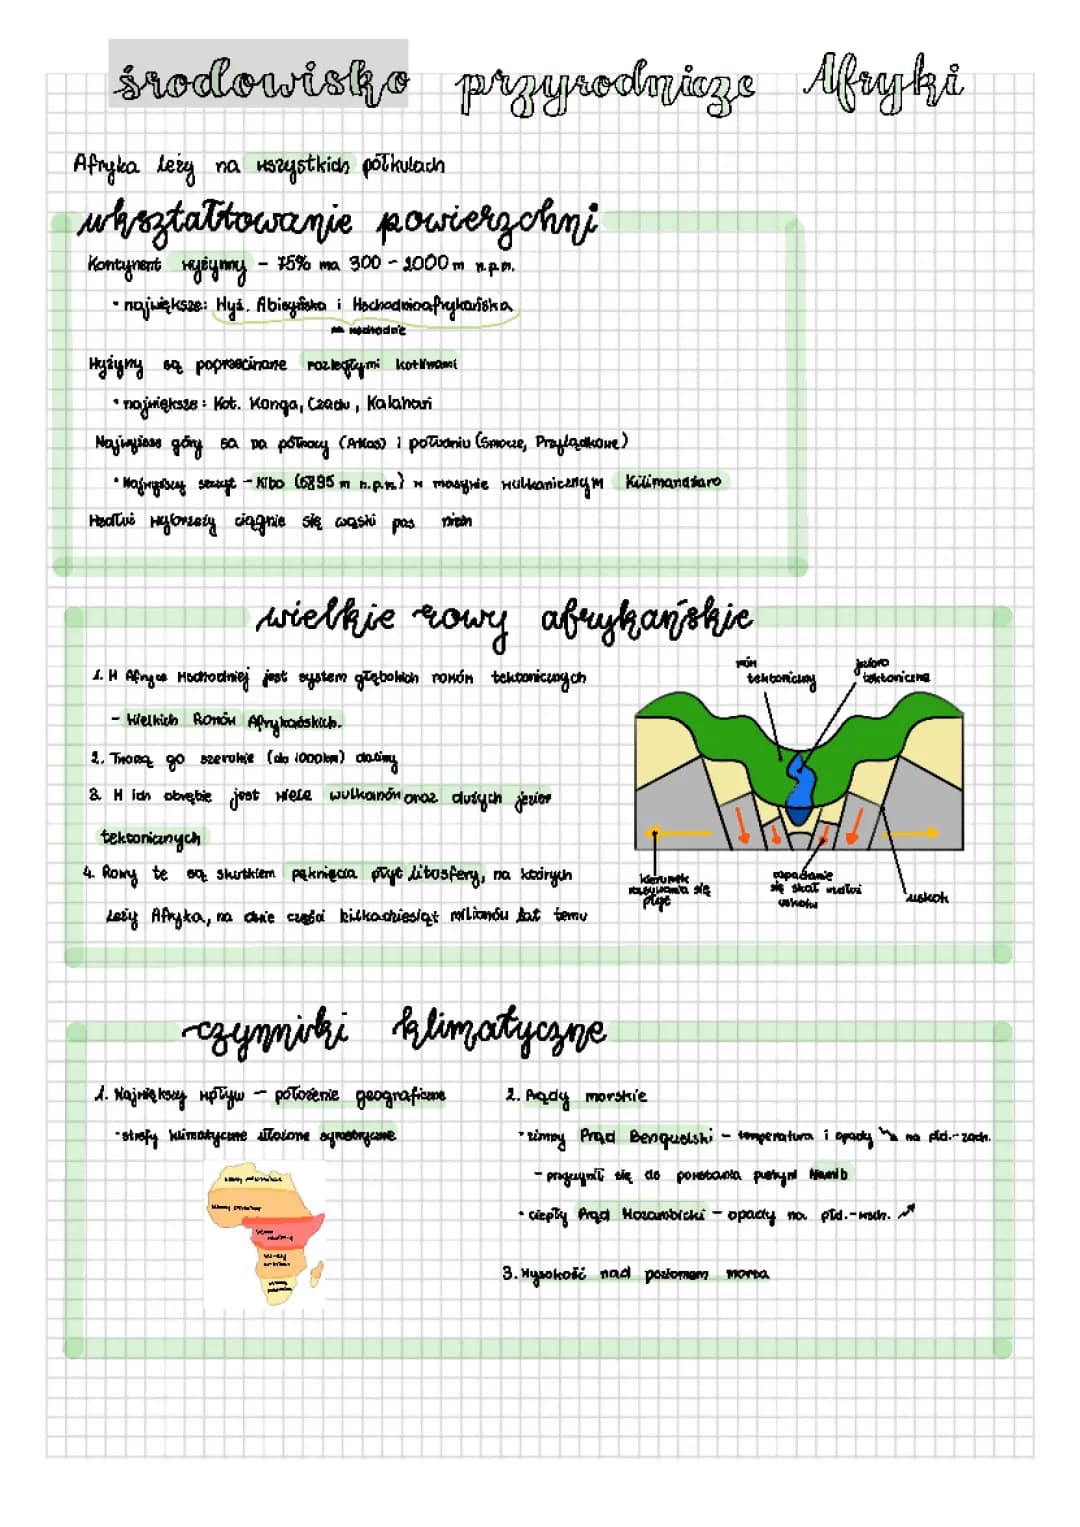 środowisko przyrodnicze Afryki
Afryka leży na wszystkich półkulach
ukształtowanie powierzchni
Kontynent wyżynny - 75% ma 300 - 2000 m n.p.m.
• największe: Wyż. Abisyńska i Wschodnioafrykańska
na wschodzie
Wyżyny są poprzecinane rozległymi kotlinami
• największe: Kot. Konga, Czadu, Kalahari
Najwyższe góry są na północy (Atlas) i południu (Smocze, Przylądkowe)
• Najwyższy szczyt - Kibo (5895 m n.p.m.) w masywie wulkanicznym Kilimandżaro
Wzdłuż wybrzeży ciągnie się wąski pas nizin
wielkie rowy afrykańskie
1. W Afryce Wschodniej jest system głębokich rowów tektonicznych
- Wielkich Rowów Afrykańskich.
2. Tworzą go szerokie (do 1000km) doliny
3. W ich obrębie jest wiele wulkanów oraz dużych jezior
tektonicznych
4. Rowy te są skutkiem pęknięcia płyt litosfery, na których
leży Afryka, na dwie części kilkadziesiąt milionów lat temu
rów
tektoniczny
jezioro
tektoniczne
kierunek
rozsuwania się
płyt
zapadanie
się skał wzdłuż
uskoku
uskok
czynniki klimatyczne
1. Największy wpływ - położenie geograficzne
•strefy klimatyczne ułożone symetrycznie
2. Prądy morskie
• zimny Prąd Benguelski - temperatura i opady ↘ na płd.-zach.
- przyczynił się do powstania pustyni Namib
• ciepły Prąd Mozambicki - opady na płd.-wsch. ↗
3. Wysokość nad poziomem morza